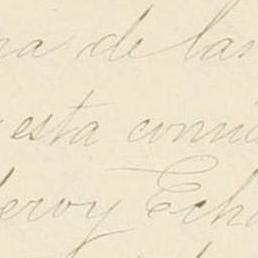 ra de las
esta comu
deroy Echa